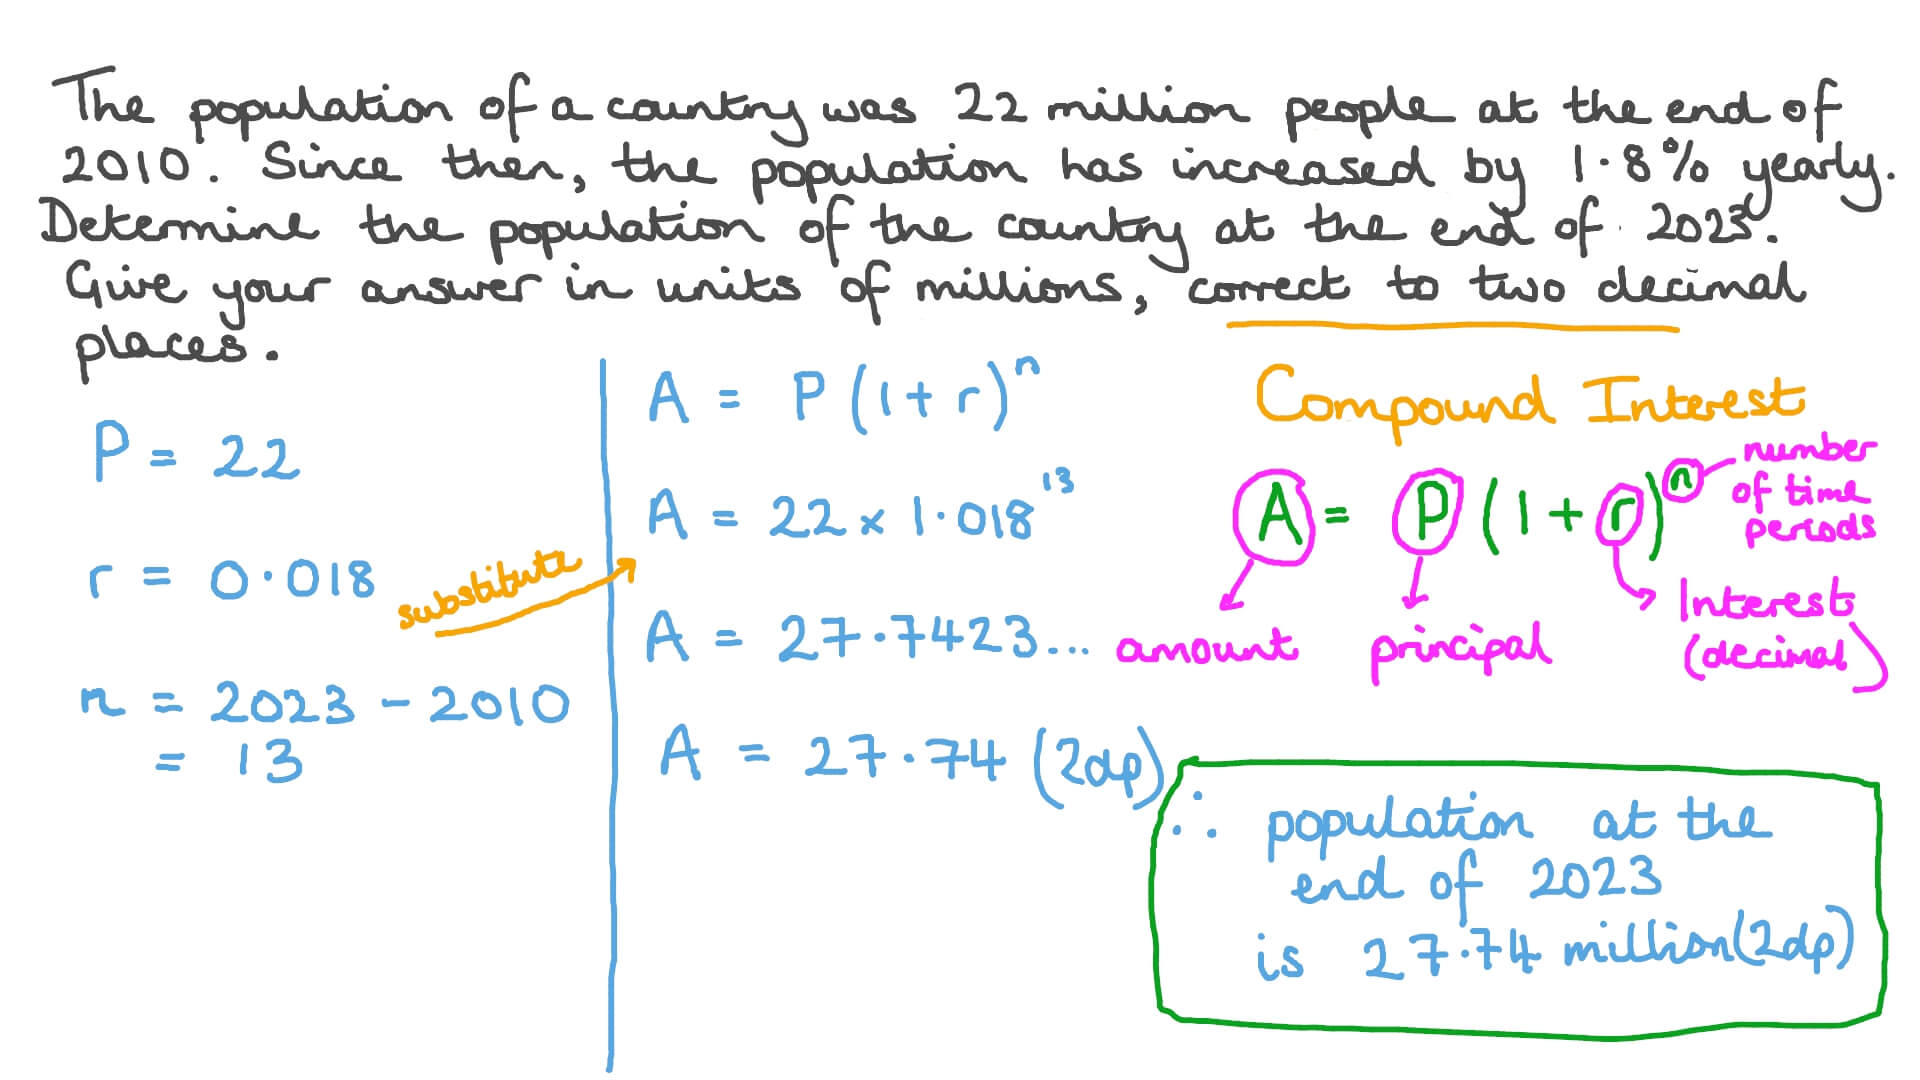 The population of a country was 22 million people at the end of
2010. Since then, the population has increased by 1.8% yearly.
Determine the population of the country at the end of 2023.
Give your answer in units of millions, correct to two decimal
places.
P = 22
r = 0.018
substitute
n = 2023 - 2010
= 13
A = P(1 + r)ⁿ
A = 22 × 1.018¹³
A = 27.7423...
A = 27.74 (2dp)
Compound Interest
A = P(1 + r)ⁿ
number
of time
periods
amount
principal
Interest
(decimal)
∴ population at the
end of 2023
is 27.74 million (2dp)